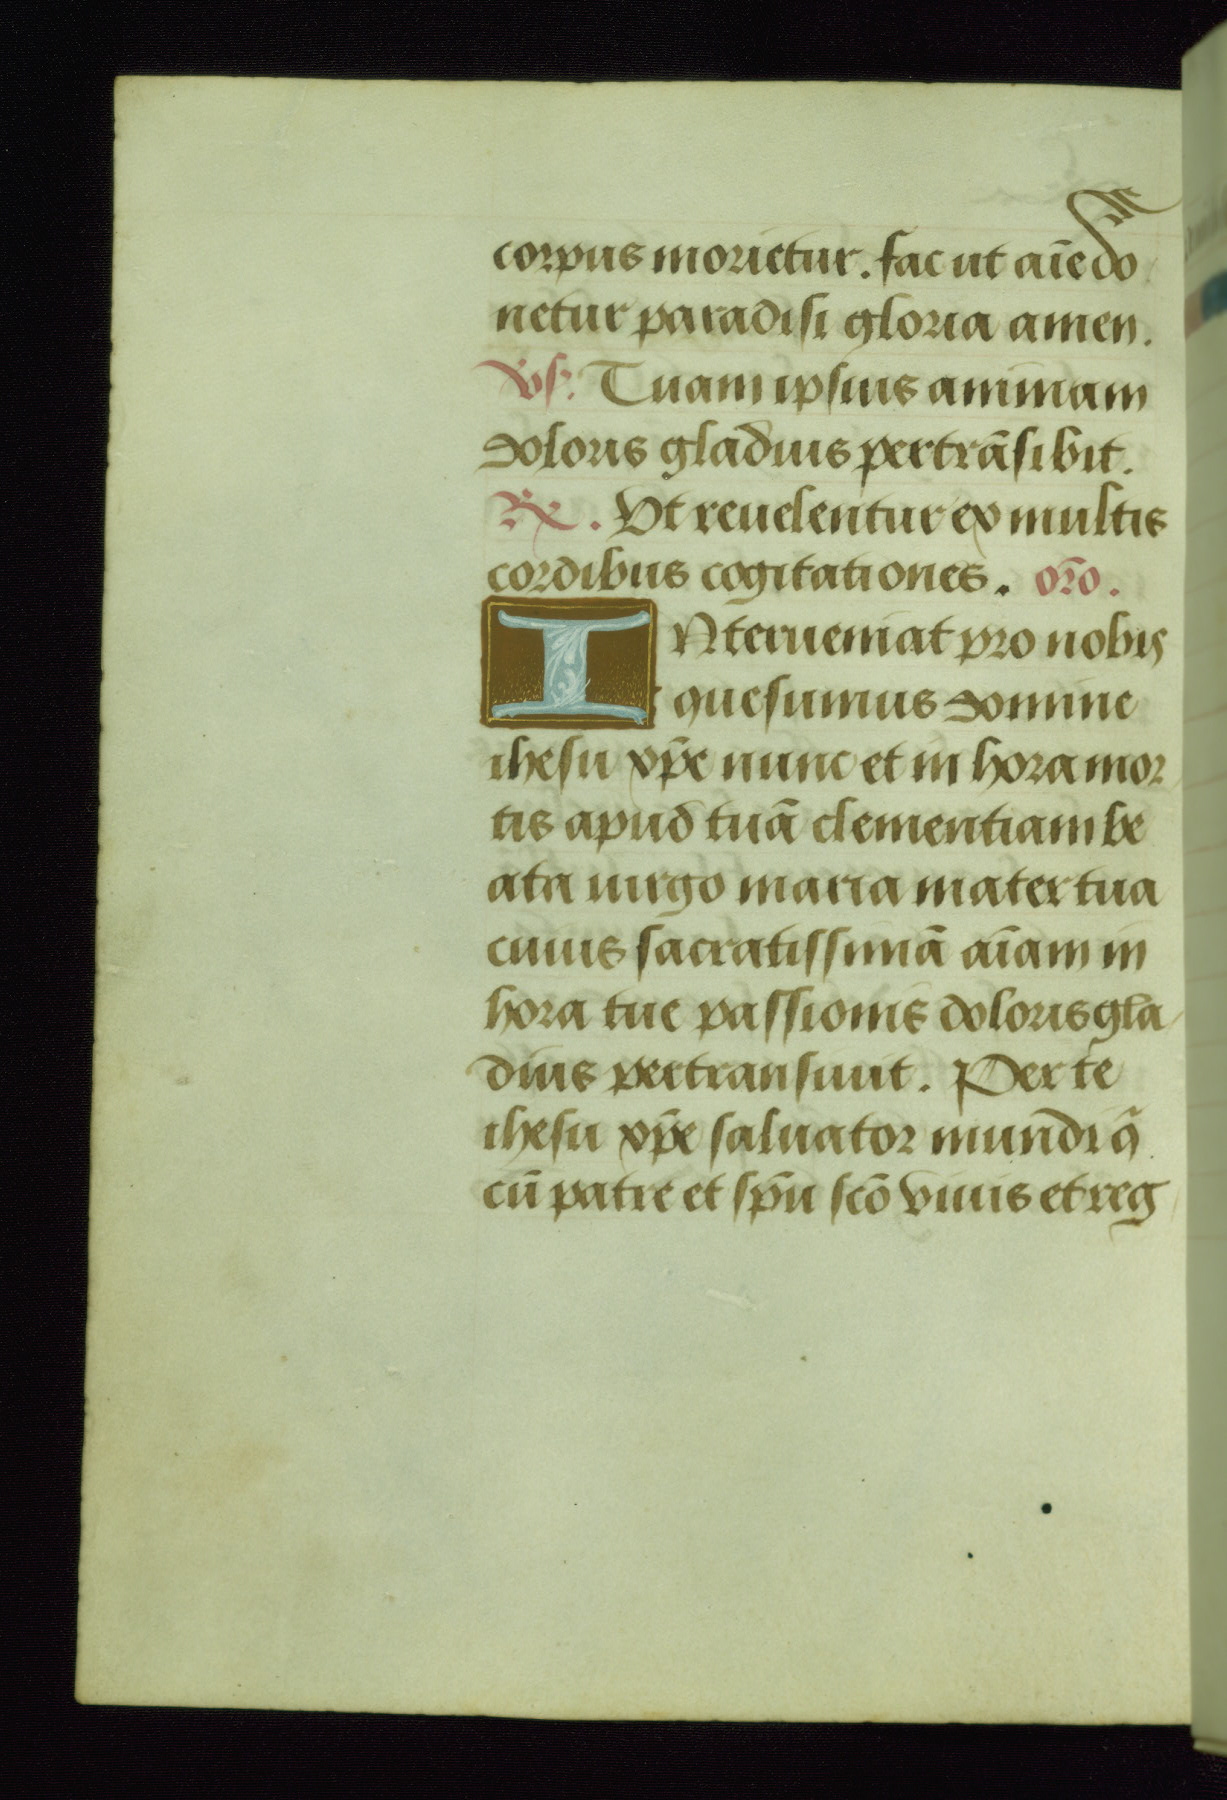 corpus morietur. fac ut aīe do
netur paradisi gloria amen.
Vs. Tuam ipsius animam
doloris gladius pertrāsibit.
Rx. Ut reuelentur ex multis
cordibus cogitationes. orō.
INterueniat pro nobis
quesumus domine
ihesu xp̄e nunc et in hora mor
tis apud tuā clementiam be
ata uirgo maria mater tua
cuius sacratissimā aīam in
hora tue passionis doloris gla
dius pertransiuit. Per te
ihesu xp̄e saluator mundi q̄
cū patre et sp̄u scō viuis et reg